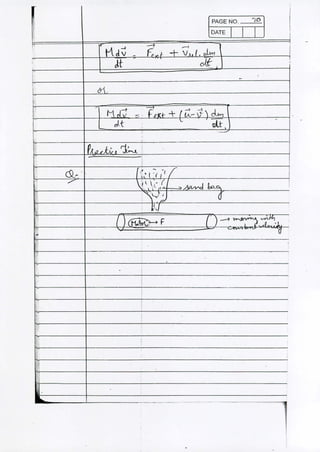 PAGE NO. 70
DATE
M dv⃗/dt = F⃗ext + V⃗rel. dm/dt
or
M dv⃗/dt = F⃗ext + (u⃗-v⃗) dm/dt
Practice Time
Q-
→ sand bag
Motor → F
→ moving with
constant velocity